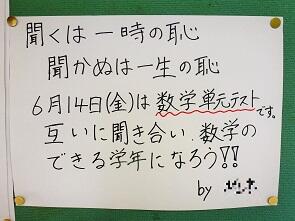 聞くは一時の恥
聞かぬは一生の恥
6月14日(金)は数学単元テストです。
互いに聞き合い、数学の
できる学年になろう!!
by